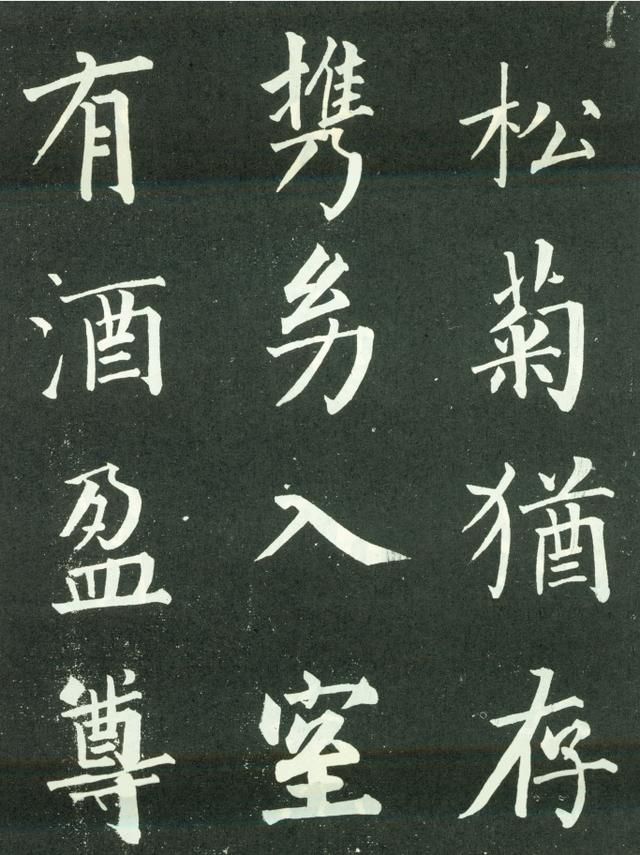 松菊猶存
携㓜入室
有酒盈尊